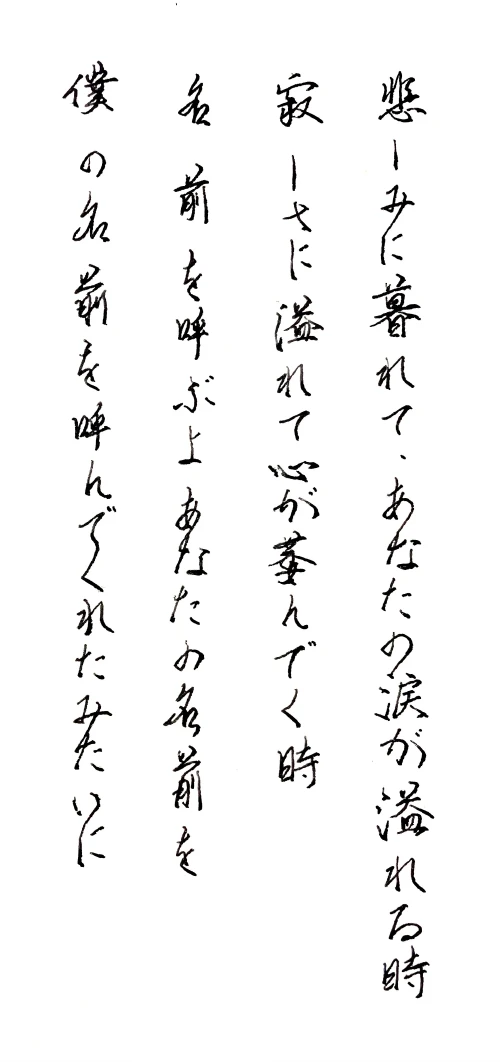 悲しみに暮れて、あなたの涙が溢れる時
寂しさに溢れて心が萎んでく時
名前を呼ぶよあなたの名前を
僕の名前を呼んでくれたみたいに